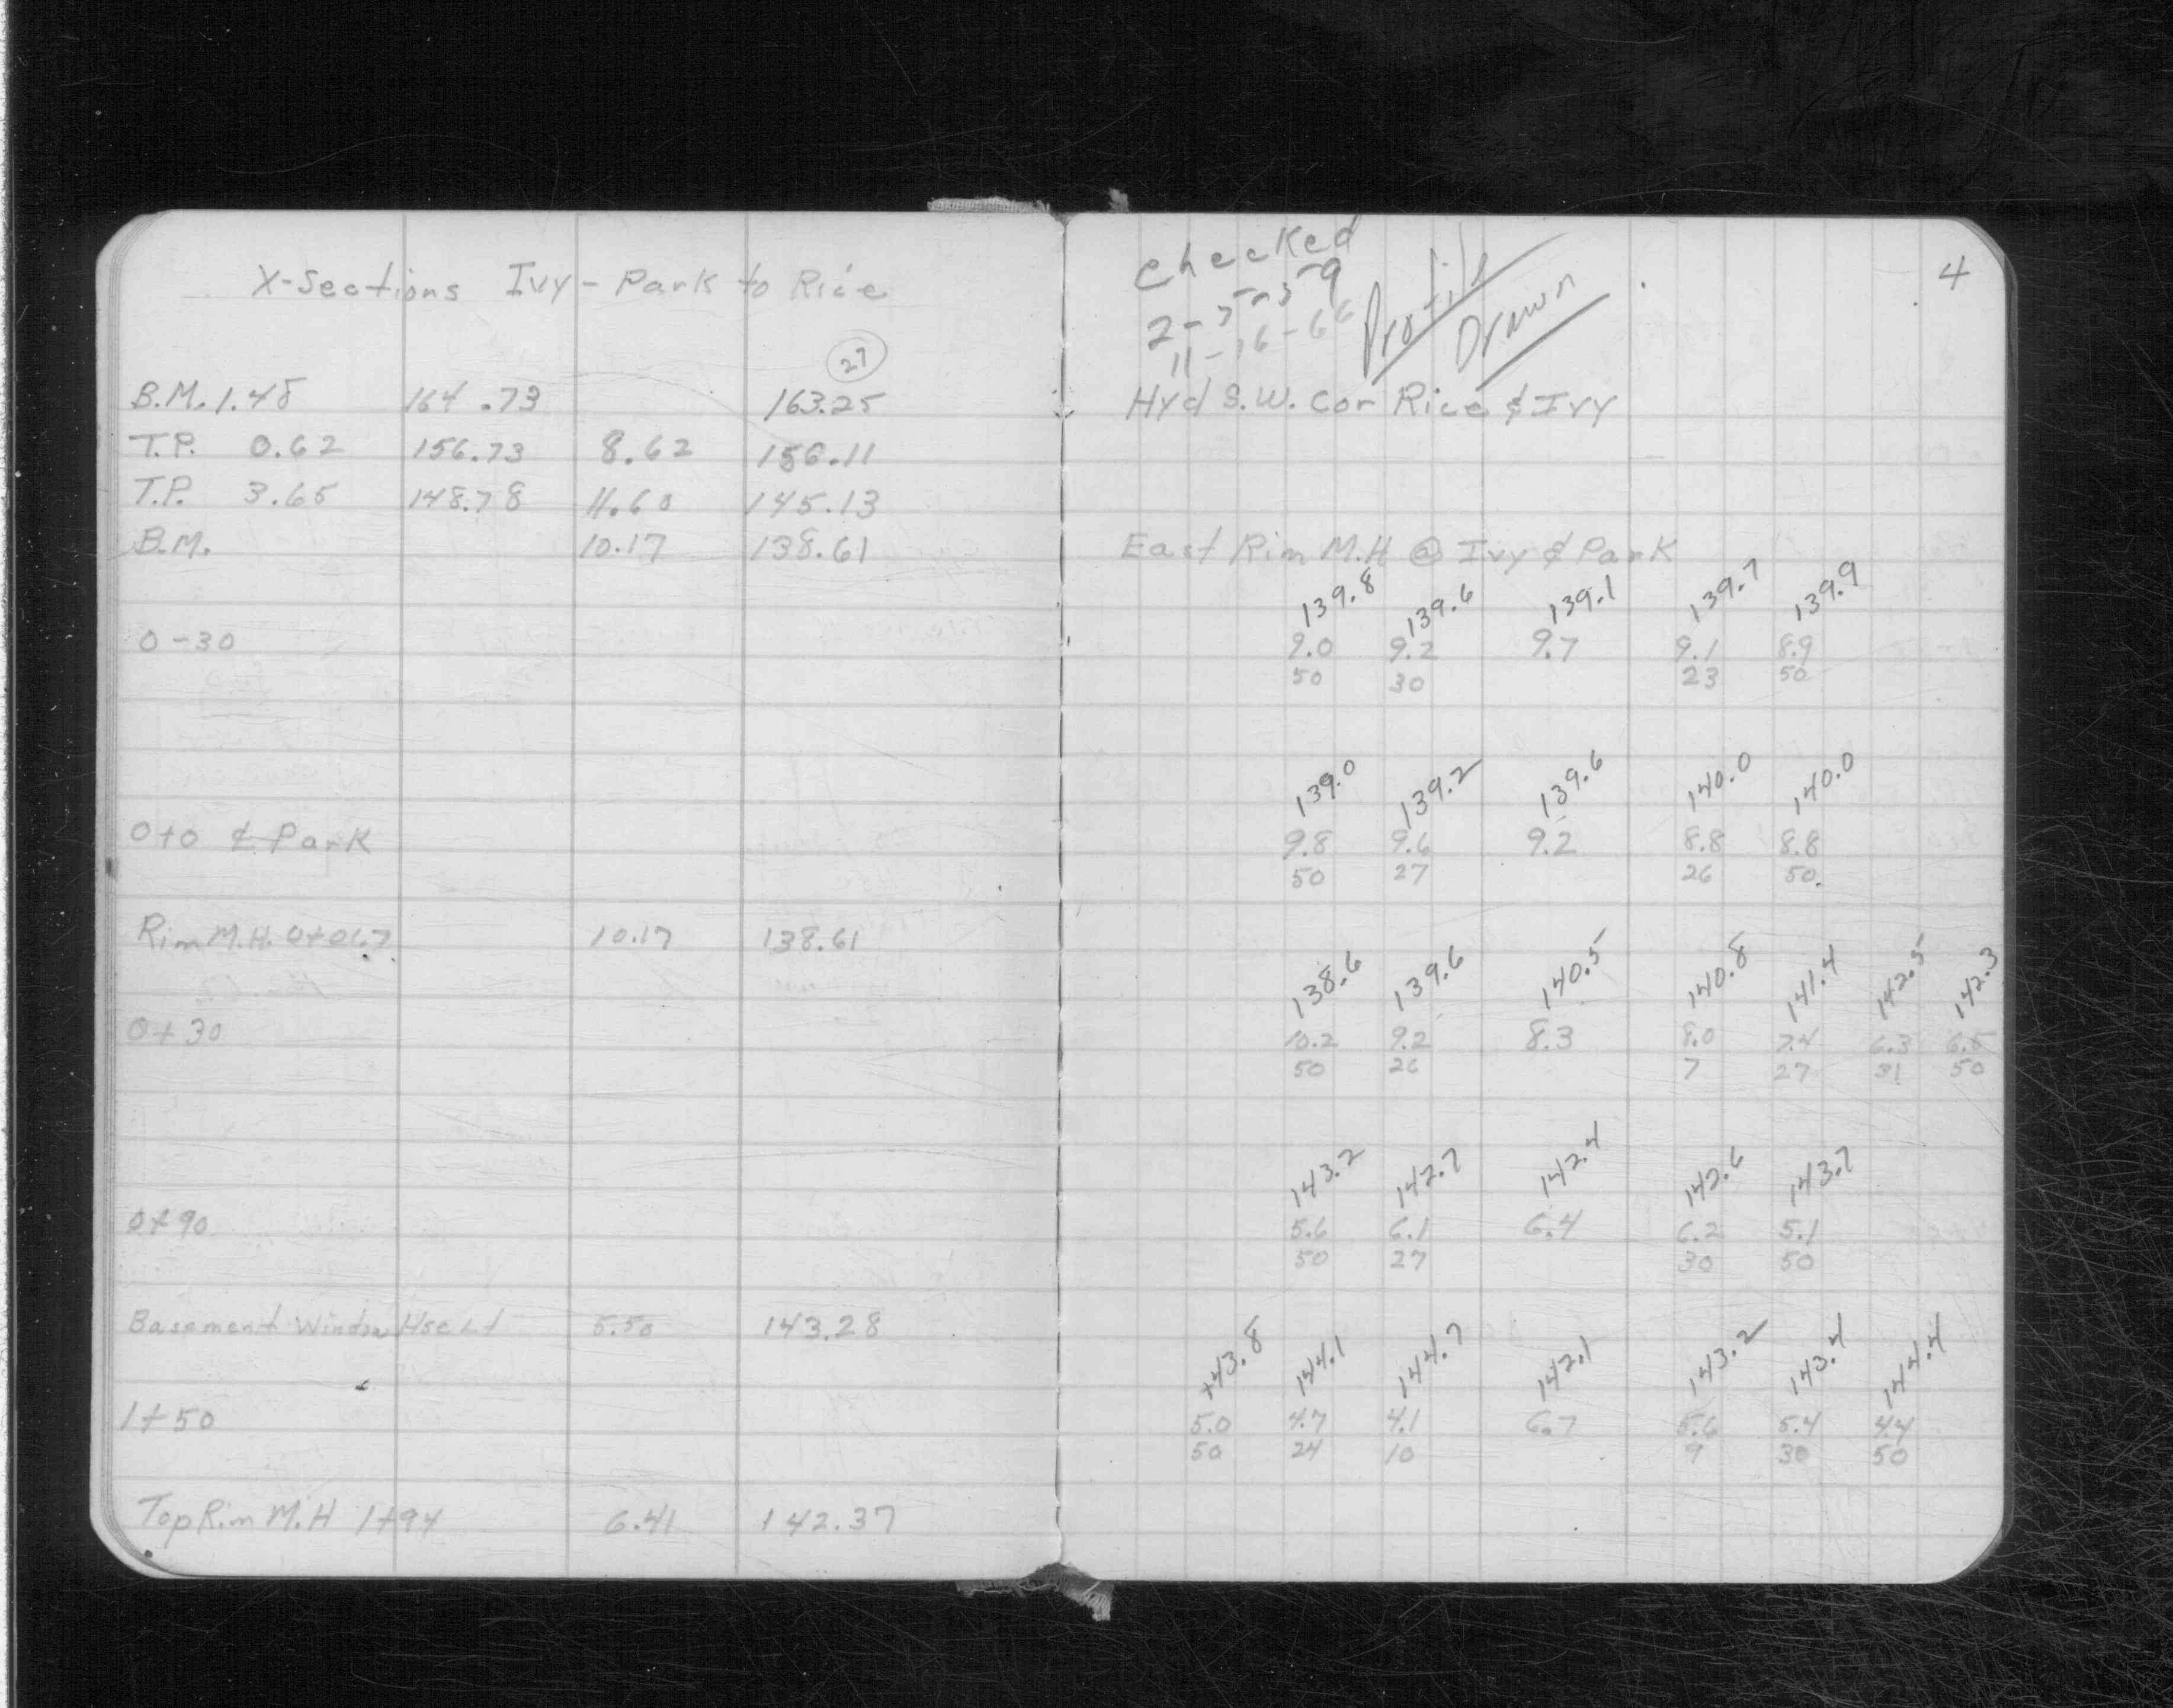 X-Sections Ivy - Park to Rice
27
B.M. 1.48 164.73 163.25
T.P. 0.62 156.73 8.62 156.11
T.P. 3.65 148.78 11.60 145.13
B.M. 10.17 138.61
0-30
0+0 ₵ Park
Rim M.H. 10.17 138.61
0+30
0+90
Basement Window Hse Lt 5.50 143.28
1+50
Top Rim M.H 1+94 6.41 142.37
4
Checked
11-16-66
Profile
Drawn
Hyd S.W. Cor Rice & Ivy
East Rim M.H @ Ivy & Park
139.8 139.6 139.1 139.7 139.9
9.0 9.2 9.7 9.1 8.9
50 30 23 50
139.0 139.2 139.6 140.0 140.0
9.8 9.6 9.2 8.8 8.8
50 27 26 50
138.6 139.6 140.5 140.8 141.4 142.5 142.3
10.2 9.2 8.3 8.0 7.4 6.3 6.5
50 26 7 27 31 50
143.2 142.7 142.4 142.6 143.7
5.6 6.1 6.4 6.2 5.1
50 27 30 50
143.8 144.1 144.7 142.1 143.2 143.4 144.4
5.0 4.7 4.1 6.7 5.6 5.4 4.4
50 24 10 9 30 50